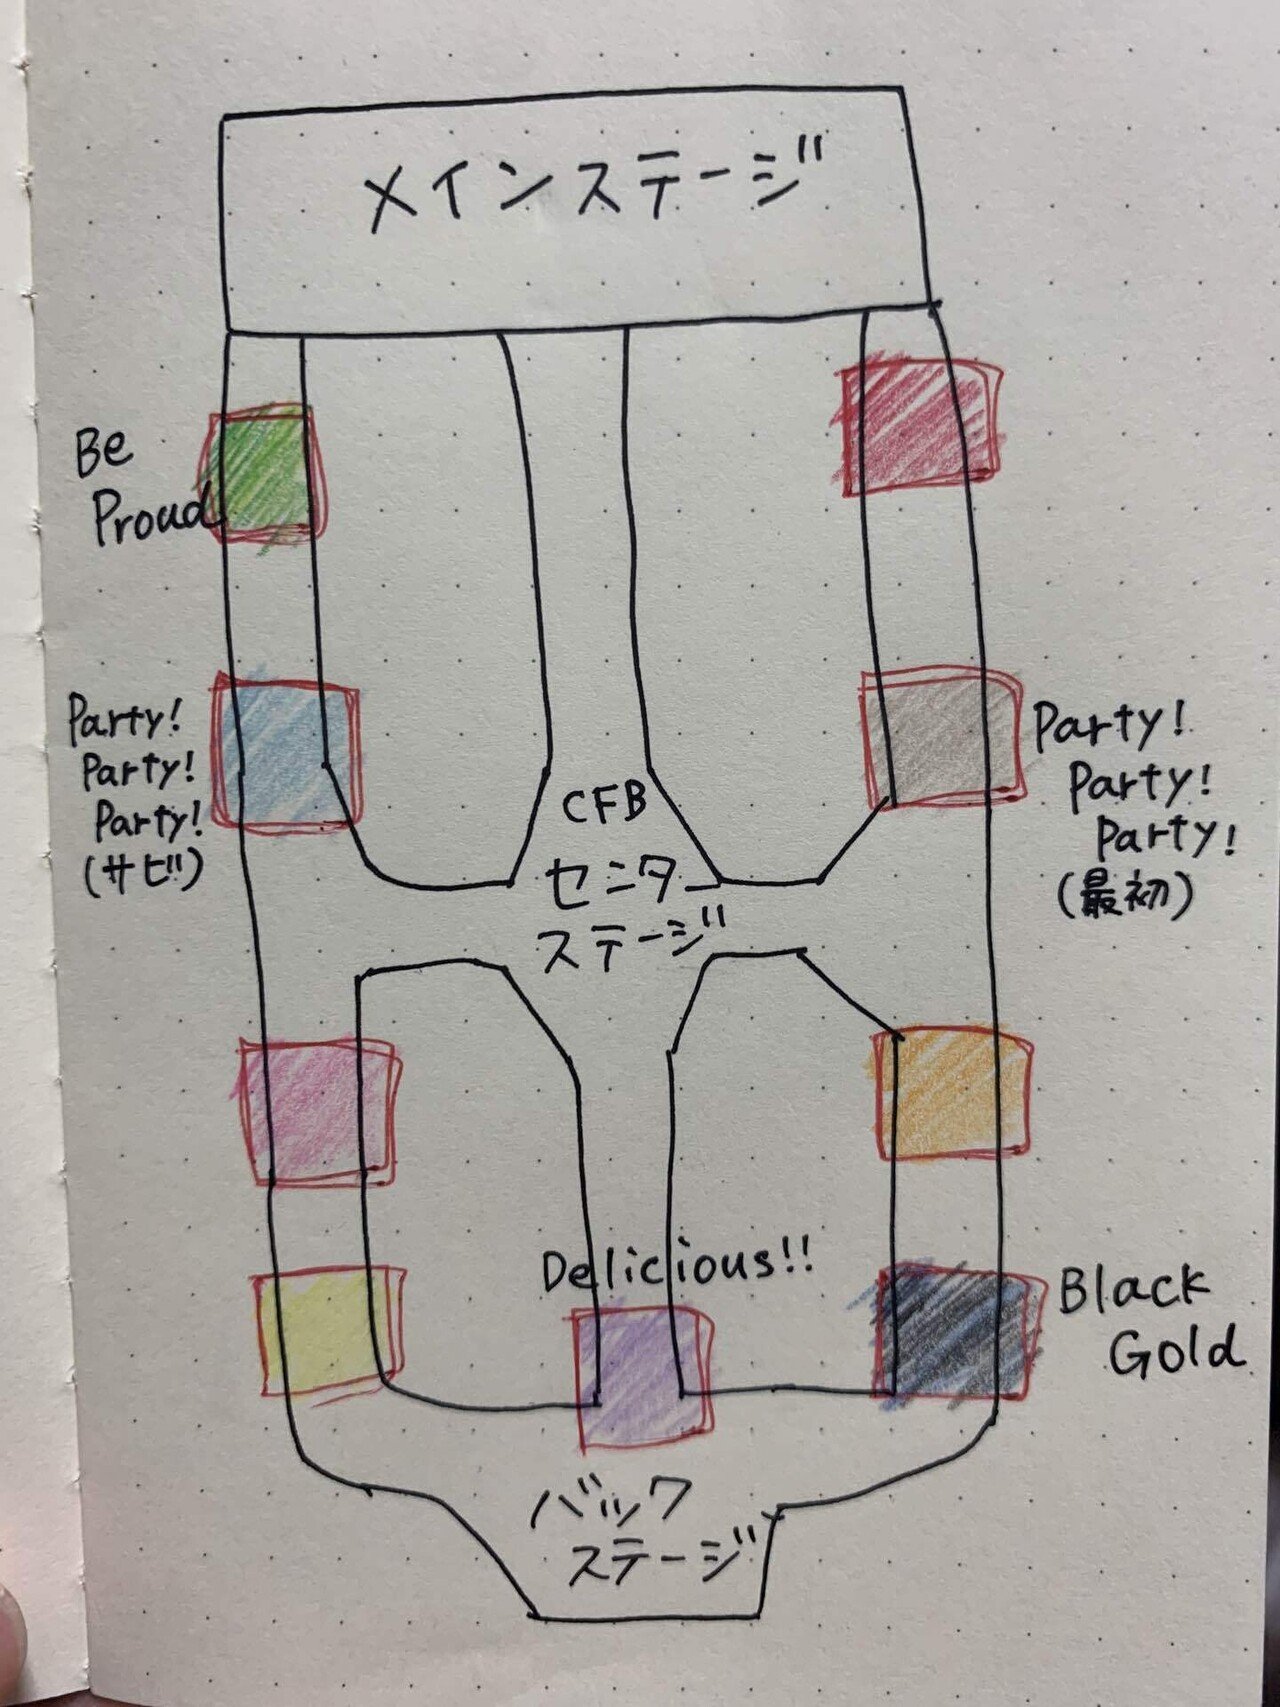 メインステージ
Be
Proud
Party!
Party!
Party!
(サビ)
Party!
Party!
Party!
(最初)
CFB
センター
ステージ
Delicious!!
Black
Gold
バック
ステージ